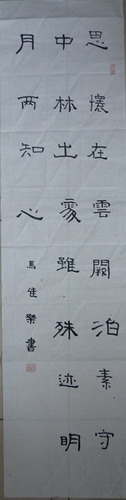 思懷在雲闕泊素守
中林出處雖殊迹明
月兩知心
馬佳樂書